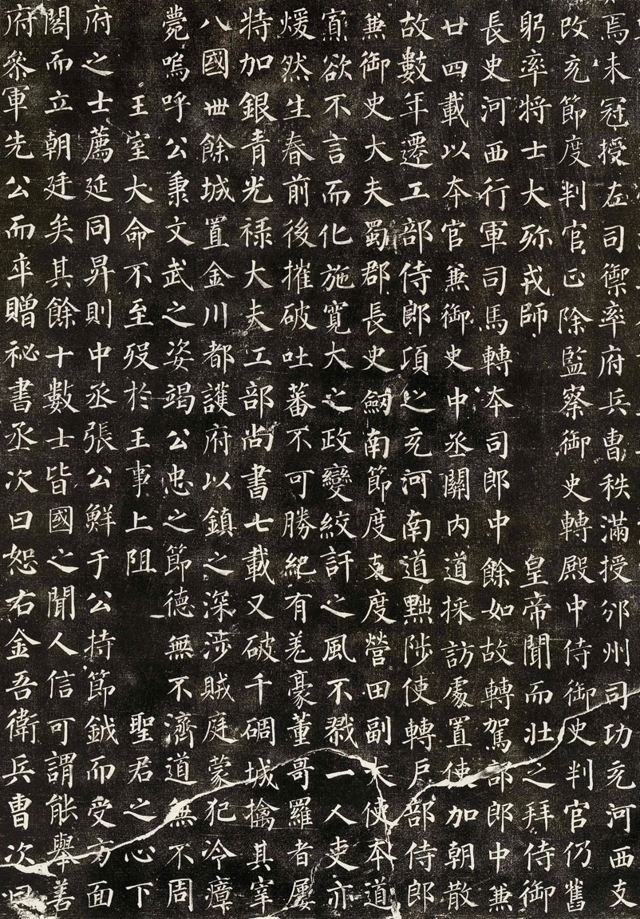 焉未冠授左司禦率府兵曹秩滿授邠州司功充河西支
改充節度判官正除監察御史轉殿中侍御史判官仍舊
躬率將士大殄戎師　皇帝聞而壯之拜侍御
長史河西行軍司馬轉本司郎中餘如故轉駕部郎中兼
廿四載以本官兼御史中丞關內道採訪處置使加朝散
故數年遷工部侍郎頃之充河南道黜陟使轉戶部侍郎
兼御史大夫蜀郡長史劒南節度支度營田副大使本道
寡欲不言而化施寬大之政變絞訐之風不戮一人吏亦
煖然生春前後摧破吐蕃不可勝紀有羌豪董哥羅者屢
特加銀青光祿大夫工部尚書七載又破千碉城擒其宰
八國卌餘城置金川都護府以鎮之深涉賊庭蒙犯冷瘴
薨嗚呼公秉文武之姿竭公忠之節德無不濟道無不周
王室大命不至歿於王事上阻　聖君之心下
府之士薦延同昇則中丞張公鮮于公持節鉞而受方面
閣而立朝廷矣其餘十數士皆國之聞人信可謂能舉善
府參軍先公而卒贈祕書丞次曰恕右金吾衛兵曹次曰